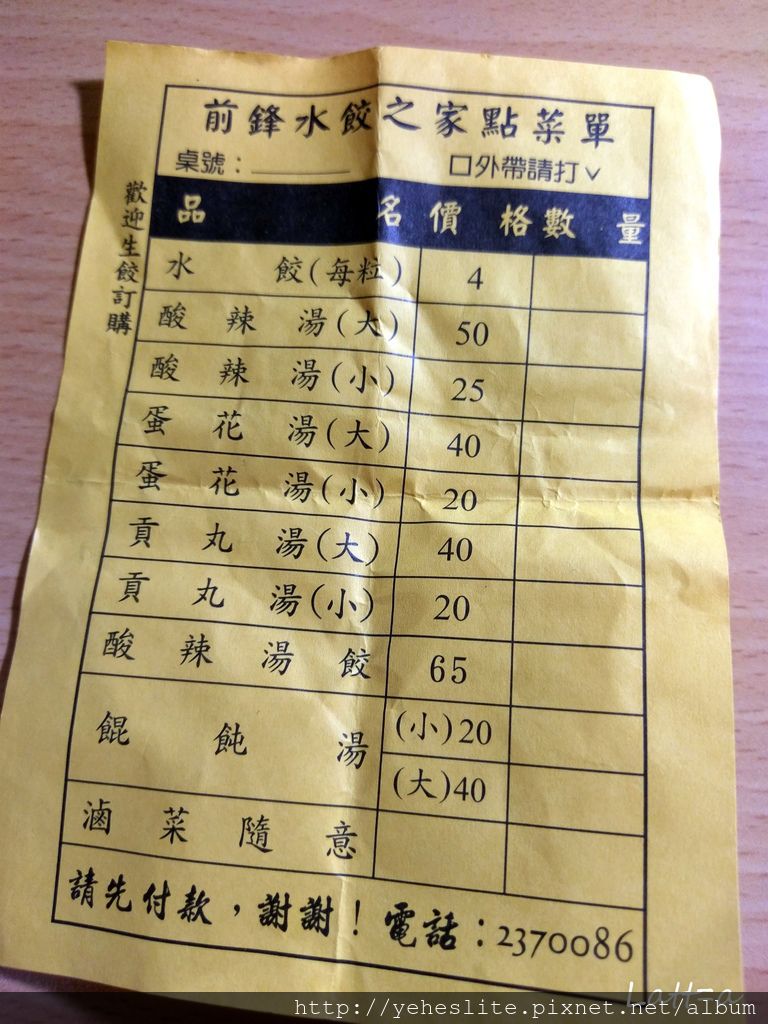 前鋒水餃之家點菜單
桌號：________ 口外帶請打∨
歡迎生餃訂購
品名 價格 數量
水餃(每粒) 4
酸辣湯(大) 50
酸辣湯(小) 25
蛋花湯(大) 40
蛋花湯(小) 20
貢丸湯(大) 40
貢丸湯(小) 20
酸辣湯餃 65
餛飩湯 (小)20
(大)40
滷菜隨意
請先付款，謝謝！電話：2370086
http://yeheslite.pixnet.net/album